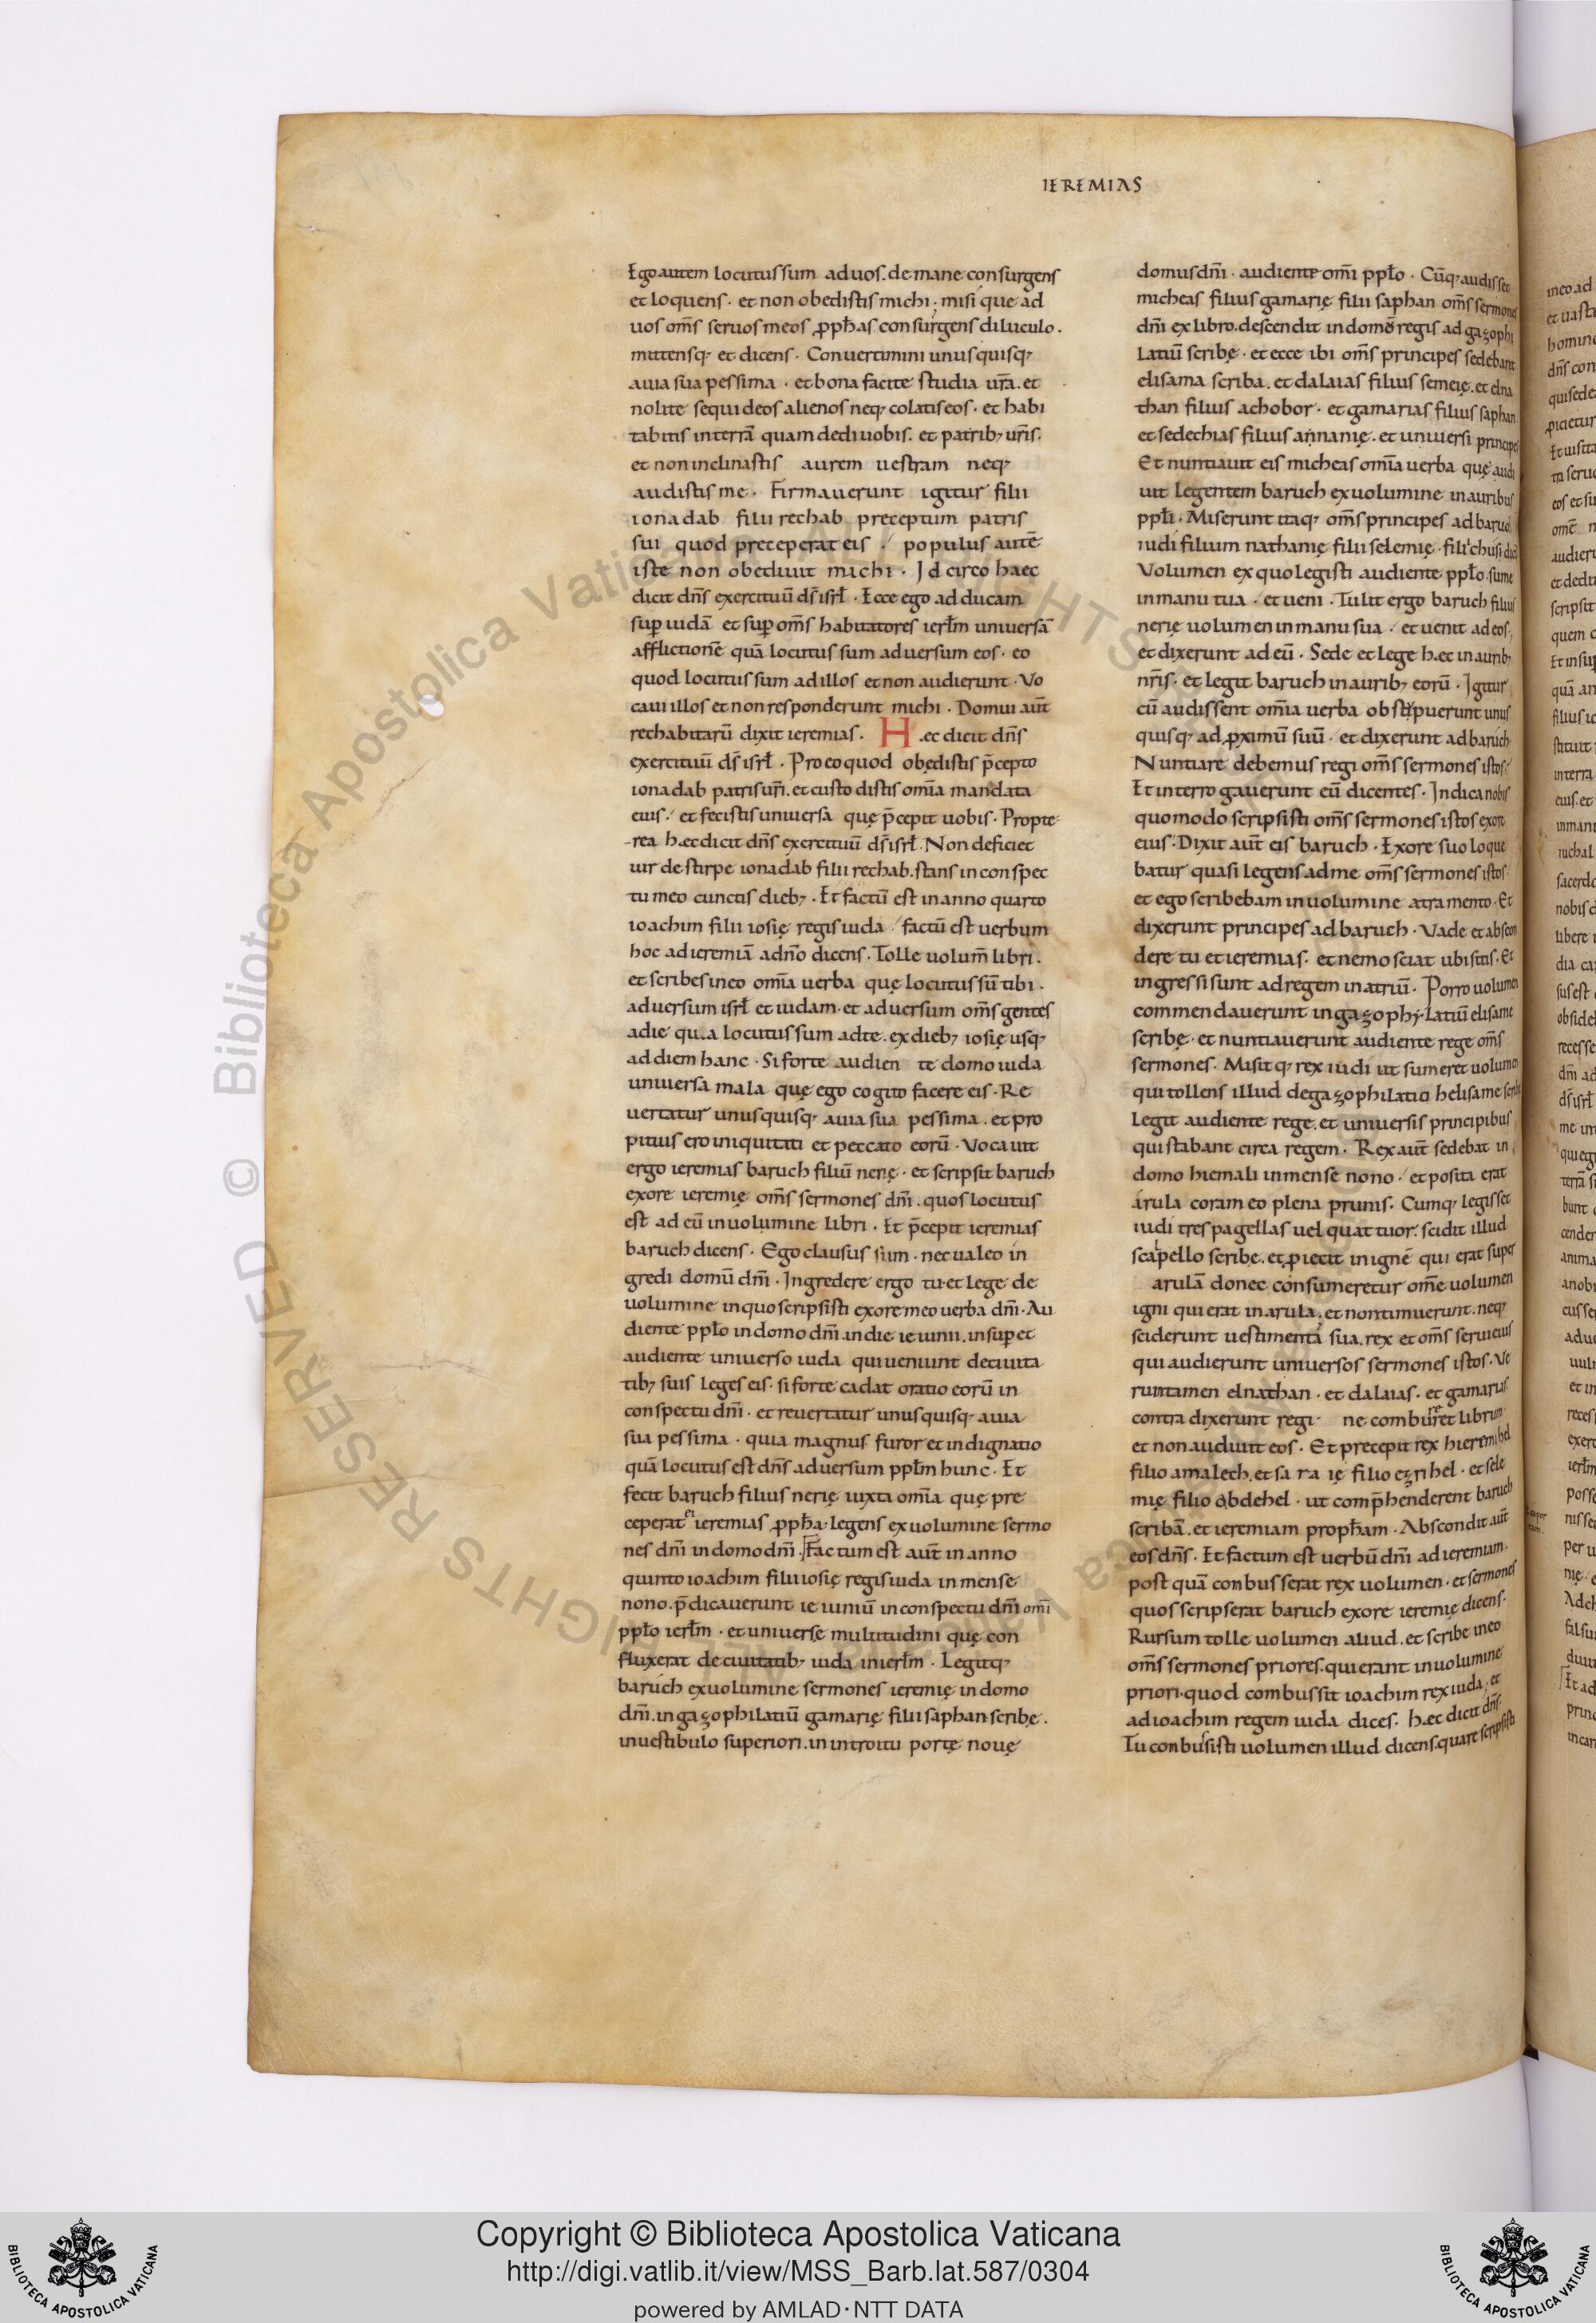 IEREMIAS
Ego autem locutus sum ad uos. de mane consurgens
et loquens. et non obedistis michi; misi que ad
uos om̄s seruos meos ꝓpħas consurgens diluculo.
mittensq; et dicens. Conuertimini unusquisq;
a uia sua pessima. et bona facite studia ur̄a. et
nolite sequi deos alienos neq; colatis eos. et habi
tabitis in terrā quam dedi uobis. et patrib; ur̄is.
et non inclinastis aurem uestram neq;
audistis me. Firmauerunt igitur filii
ionadab filii rechab preceptum patris
sui quod preceperat eis. populus autē
iste non obediuit michi. Idcirco haec
dicit dn̄s exercituū ds̄ isrł. Ecce ego adducam
suꝑ iudā et suꝑ om̄s habitatores ierłm uniuersā
afflictionē quā locutus sum aduersum eos. eo
quod locutus sum ad illos et non audierunt. Vo
caui illos et non responderunt michi. Domui aut̄
rechabitarū dixit ieremias. Hec dicit dn̄s
exercituū ds̄ isrł. Pro eo quod obędistis p̄cepto
ionadab patris ur̄i. et custodistis om̄ia mandata
eius. et fecistis uniuersa quę p̄cepit uobis. Propte
rea hæc dicit dn̄s exercituū ds̄ isrł. Non deficiet
uir de stirpe ionadab filii rechab. stans in conspec
tu meo cunctis dieb;. Et factū est in anno quarto
ioachim filii iosię regis iuda factū est uerbum
hoc ad ieremiā a dn̄o dicens. Tolle uolum̄ libri.
et scribes in eo om̄ia uerba quę locutus sū tibi.
aduersum isrł et iudam. et aduersum om̄s gentes
a die qua locutus sum ad te. ex dieb; iosię usq;
ad diem hanc. Si forte audien te domo iuda
uniuersa mala quę ego cogito facere eis. Re
uertatur unusquisq; a uia sua pessima. et pro
pitius ero iniquitati et peccato eorū. Vocauit
ergo ieremias baruch filiū nerię. et scripsit baruch
ex ore ieremię om̄s sermones dn̄i. quos locutus
est ad eū in uolumine libri. Et p̄cepit ieremias
baruch dicens. Ego clausus sum. nec ualeo in
gredi domū dn̄i. Ingredere ergo tu. et lege de
uolumine in quo scripsisti ex ore meo uerba dn̄i. Au
diente ppło in domo dn̄i. in die ieiunii. insuꝑ et
audiente uniuerso iuda qui ueniunt de ciuita
tib; suis leges eis. si forte cadat oratio eorū in
conspectu dn̄i. et reuertatur unusquisq; a uia
sua pessima. quia magnus furor et indignatio
quā locutus est dn̄s aduersum ppłm hunc. Et
fecit baruch filius nerię iuxta om̄ia quę pre
ceperat ei ieremias ꝓpħa. legens ex uolumine sermo
nes dn̄i in domo dn̄i. Factum est aut̄ in anno
quinto ioachim filii iosię regis iuda in mense
nono. p̄dicauerunt ieiuniū in conspectu dn̄i om̄i
ppło ierłm. et uniuersę multitudini quę con
fluxerat de ciuitatib; iuda in ierłm. Legitq;
baruch ex uolumine sermones ieremię in domo
dn̄i. in gazophilatiū gamarię filii saphan scribę.
in uestibulo superiori. in introitu portę nouę
domus dn̄i. audiente om̄i ppło. Cūq; audisset
micheas filius gamarię filii saphan om̄s sermones
dn̄i ex libro. descendit in domō regis ad gazophi
latiū scribę. et ecce ibi om̄s principes sedebant
elisama scriba. et dalaias filius semeię. et elna
than filius achobor. et gamarias filius saphan
et sedechias filius annanię. et uniuersi principes
Et nuntiauit eis micheas om̄ia uerba quę audi
uit legentem baruch ex uolumine in auribus
ppłi. Miserunt itaq; om̄s principes ad baruch
iudi filium nathanię filii selemię. filii chusi
Volumen ex quo legisti audiente ppło. sume
in manu tua. et ueni. Tulit ergo baruch filius
nerię uolumen in manu sua. et uenit ad eos.
et dixerunt ad eū. Sede et lege hæc in aurib;
nr̄is. et legit baruch in aurib; eorū. Igitur
cū audissent om̄ia uerba obstipuerunt unus
quisq; ad ꝓximū suū. et dixerunt ad baruch
Nuntiare debemus regi om̄s sermones istos.
Et interrogauerunt eū dicentes. Indica nobis
quomodo scripsisti om̄s sermones istos ex ore
eius. Dixit aut̄ eis baruch. Ex ore suo loque
batur quasi legens ad me om̄s sermones istos
et ego scribebam in uolumine atramento. Et
dixerunt principes ad baruch. Vade et abscon
dere tu et ieremias. et nemo sciat ubi sitis. Et
ingressi sunt ad regem in atriū. Porro uolumen
commendauerunt in gazophylatiū elisame
scribę. et nuntiauerunt audiente rege om̄s
sermones. Misit q; rex iudi ut sumeret uolumen
qui tollens illud de gazophilatio helisame scribe
Legit audiente rege. et uniuersis principibus
qui stabant circa regem. Rex aut̄ sedebat in
domo hiemali in mense nono. et posita erat
arula coram eo plena prunis. Cumq; legisset
iudi tres pagellas uel quattuor. scidit illud
scalpello scribe. et ꝓiecit in ignē qui erat super
arulā donec consumeretur om̄e uolumen
igni qui erat in arula. et non timuerunt. neq;
sciderunt uestimenta sua. rex et om̄s serui eius
qui audierunt uniuersos sermones istos. Ve
runtamen elnathan. et dalaias. et gamarias
contradixerunt regi ne combureret librum
et non audiuit eos. Et precepit rex hieremihel
filio amalech. et sa ra ię filio ezrihel. et sele
mię filio abdehel. ut comp̄henderent baruch
scribā. et ieremiam propħam. Abscondit aut̄
eos dn̄s. Et factum est uerbū dn̄i ad ieremiam.
post quā conbusserat rex uolumen. et sermones
quos scripserat baruch ex ore ieremię dicens.
Rursum tolle uolumen aliud. et scribe in eo
om̄s sermones priores. qui erant in uolumine
priori. quod combussit ioachim rex iuda; et
ad ioachim regem iuda dices. hæc dicit dn̄s.
Tu conbusisti uolumen illud dicens. quare scripsisti
Copyright © Biblioteca Apostolica Vaticana
http://digi.vatlib.it/view/MSS_Barb.lat.587/0304
powered by AMLAD·NTT DATA